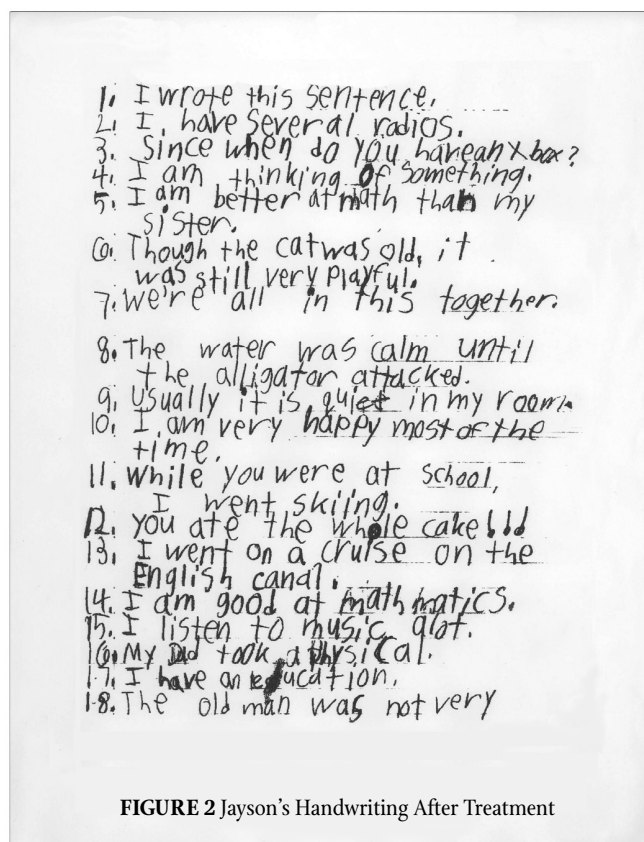 1. I wrote this sentence.
2. I have several radios.
3. Since when do you havean Xbox?
4. I am thinking of something.
5. I am better at math than my
sister.
6. Though the cat was old, it
was still very playful.
7. We're all in this together.
8. The water was calm until
the alligator attacked.
9. Usually it is quiet in my room.
10. I am very happy most of the
time.
11. While you were at school,
I went skiing.
12. you ate the whole cake!!!
13. I went on a cruise on the
English canal.
14. I am good at mathmatics.
15. I listen to music alot.
16. My Dad took a physical.
17. I have an education.
18. The old man was not very
FIGURE 2 Jayson's Handwriting After Treatment